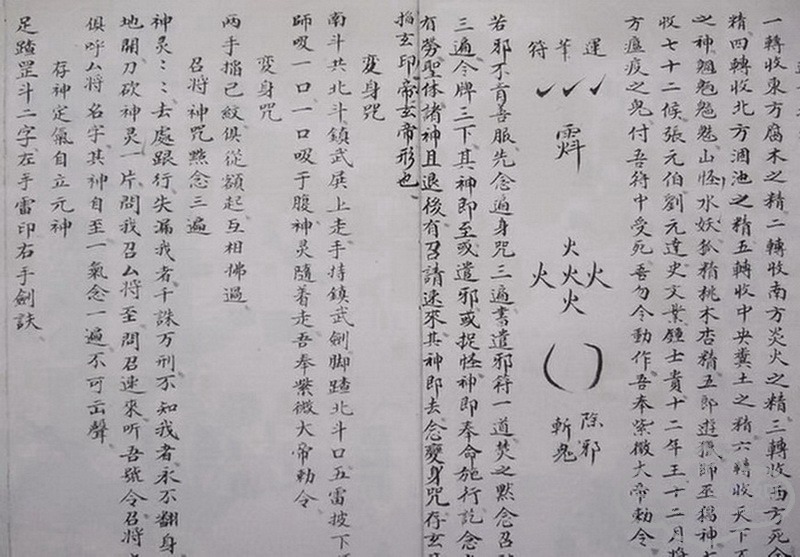 一轉收東方腐木之精二轉收南方炎火之精三轉收西方死
精四轉收北方涸池之精五轉收中央糞土之精六轉收天下
之神魑魅山怪水妖狐精桃木杏精五郎遊獵師巫猖神
收七十二候張元伯劉元達史文業鍾士貴十二年王十二月將
方瘟疫之鬼付吾符中受死吾勿令動作吾奉紫微大帝勅令
運筆符
火
火火火
火
除邪
斬鬼
若邪不肯善服先念遍身咒三遍書遣邪符一道焚之黙念召
三遍令牌三下其神即至或遣邪或捉怪神即奉命施行訖念
有勞聖体諸神且退後有召請速來其神即去念變身咒存玄
搯玄印帝玄帝形也
變身咒
南斗共北斗鎮武展上走手持鎮武劍脚踏北斗口五雷披下
師吸一口一口吸于腹神灵隨着走吾奉紫微大帝勅令
变身咒
两手搯己紋俱從額起互相拂過
召將神咒黙念三遍
神灵〻〻去處跟行失漏我者千誅万刑不知我者永不翻身
地開刀砍神灵一片問我召厶將至問召速來听吾號令召將
俱呼厶將名字其神自至一氣念一遍不可出聲
存神定氣自立元神
足踏罡斗二字左手雷印右手劍訣